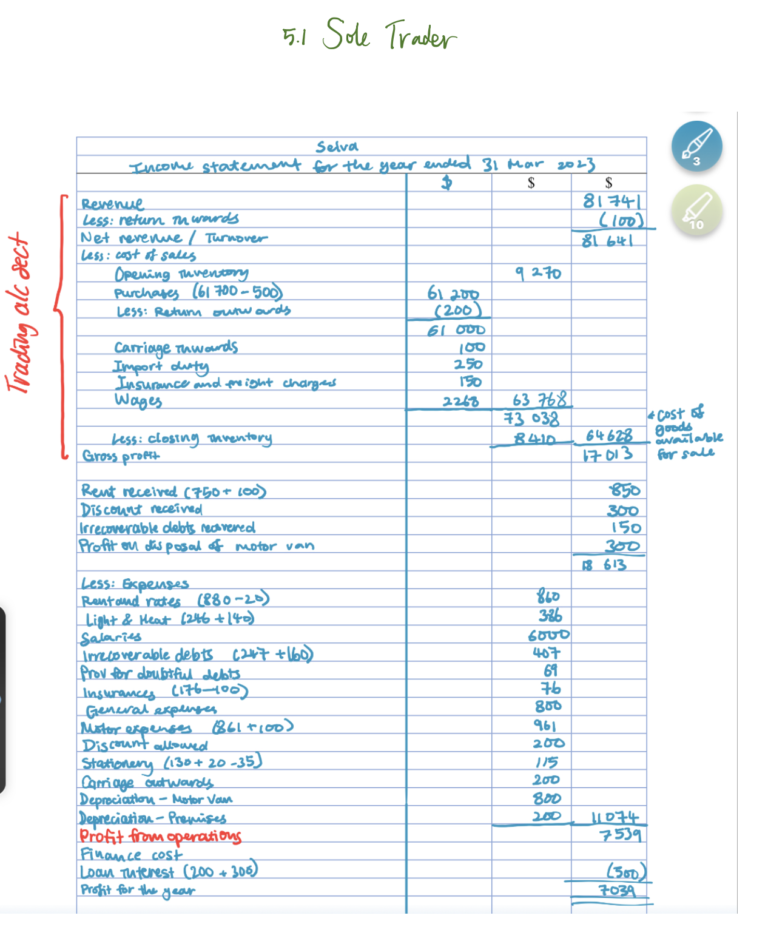 5.1 Sole Trader
3
10
Selva
Income statement for the year ended 31 Mar 2023
$ $ $
Trading a/c sect
Revenue 81 741
Less: return inwards (100)
Net revenue / Turnover 81 641
Less: cost of sales
Opening inventory 9 270
Purchases (61 700 - 500) 61 200
Less: Return outwards (200)
61 000
Carriage inwards 100
Import duty 250
Insurance and freight charges 150
Wages 2268 63 768
73 038 * cost of goods available for sale
Less: closing inventory 8410 64 628
Gross profit 17 013
Rent received (750 + 100) 850
Discount received 300
Irrecoverable debts recovered 150
Profit on disposal of motor van 300
18 613
Less: Expenses
Rent and rates (880-20) 860
Light & Heat (246 + 140) 386
Salaries 6000
Irrecoverable debts (247 + 160) 407
Prov for doubtful debts 69
Insurances (176-100) 76
General expenses 800
Motor expenses (861 + 100) 961
Discount allowed 200
Stationery (130 + 20 - 35) 115
Carriage outwards 200
Depreciation - Motor Van 800
Depreciation - Premises 200 11 074
Profit from operations 7539
Finance cost
Loan interest (200 + 300) (500)
Profit for the year 7039